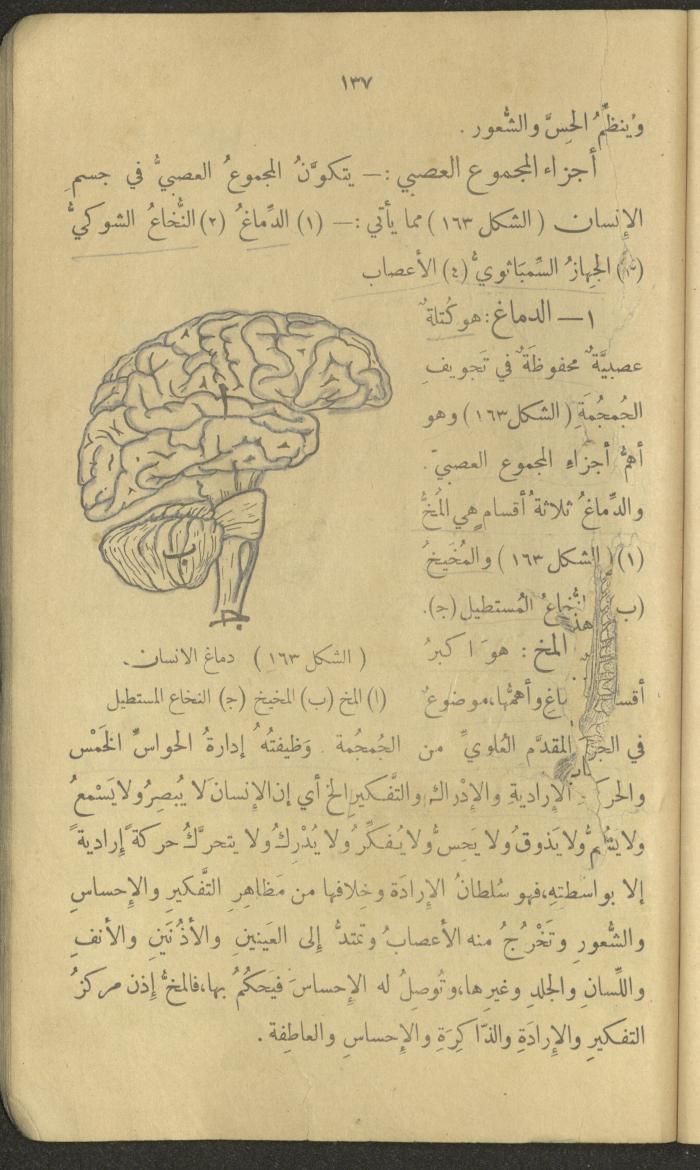 ١٣٧
وُينظِّمُ الحِسَّ والشُّعور .
أجزاء المجموع العصبي :— يتكوَّنُ المجموعُ العصبيُّ في جسمِ
الإنسان ( الشكل ١٦٣ ) مما يأتي :— (١) الدِّماغُ (٢) النُّخاعُ الشوكيُّ
(٣) الجِهازُ السِّمبَاثويُّ (٤) الأعصاب
١ — الدماغ : هو كُتلةٌ
عصبيَّةٌ محفوظَةٌ في تَجويفِ
الجُمجُمَةِ ( الشكل ١٦٣ ) وهو
أهمُّ أجزاءِ المجموع العصبيّ .
والدِّماغُ ثلاثةُ أقسام هي المُخُّ
(١) ( الشكل ١٦٣ ) والمُخَيخُ
(ب) المُستطيل (ج).
المخ : هوَ اكبرُ
وأهمُّها، موضوعٌ
( الشكل ١٦٣ ) دماغ الانسان .
(ا) المخ (ب) المخيخ (ج) النخاع المستطيل
في المقدَّم العُلويِّ من الجُمجُمة . وَظيفتُهُ إدارةُ الحواسِّ الخَمْس
الإرادية والإدْراك والتَّفكير الخ أي إن الإنسان لا يُبصِرُ ولا يَسْمعُ
ولا يَذوقُ ولا يَحِسُّ ولا يُفكِّرُ ولا يُدْرِكُ ولا يتحرَّكُ حركةً إراديةً
إلا بواسطتِهِ، فهو سُلطانُ الإرادَة وخِلافها من مَظاهِرِ التَّفكيرِ والإِحساسِ
والشُّعورِ وتَخْرُجُ منه الأعصابُ وتمتدُّ إلى العَينينِ والأذُنَينِ والأنفِ
واللِّسانِ والجلدِ وغيرِها، وتُوصِلُ له الإحساسَ فيحكُمُ بها، فالمخُّ إذن مركزُ
التفكيرِ والإرادَةِ والذّاكِرَةِ والإحساسِ والعاطِفة .